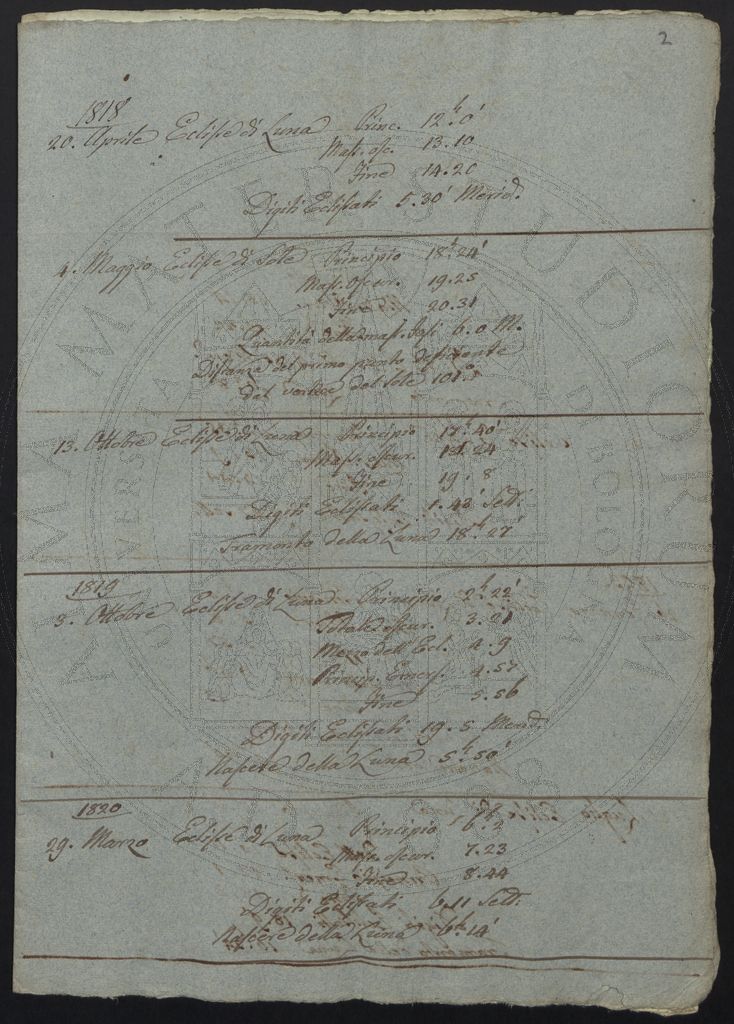 2
1818
20. Aprile Eclisse di Luna Princ. 12.h 0'
Mass. osc. 13.10
Fine 14.20
Digiti Eclissati 5.30' Merid.
4. Maggio Eclisse di Sole Principio 18.h 24'
Mass. Oscur. 19.25
Fine 20.31
Quantità della mass. fase 6.0 M.
Distanza del primo punto
dal vertice del Sole 101°
13. Ottobre Eclisse di Luna Principio 17.h 40'
Mass. oscur. 18.24
Fine 19.8
Digiti Eclissati 1.43' Sett.
Tramonto della Luna 18.h 27'
1819
3. Ottobre Eclisse di Luna Principio 2.h 22'
Totale oscur. 3.21
Mezzo dell'Ecl. 4.9
Princip. Emers. 4.57
Fine 5.56
Digiti Eclissati 19.5 Merid.
Nascere della Luna 5.h 50'
1820
29. Marzo Eclisse di Luna Principio 6.h 2'
Mass. oscur. 7.23
Fine 8.44
Digiti Eclissati 6.11 Sett.
Nascere della Luna 6.h 14'
ALMA MATER STUDIORUM